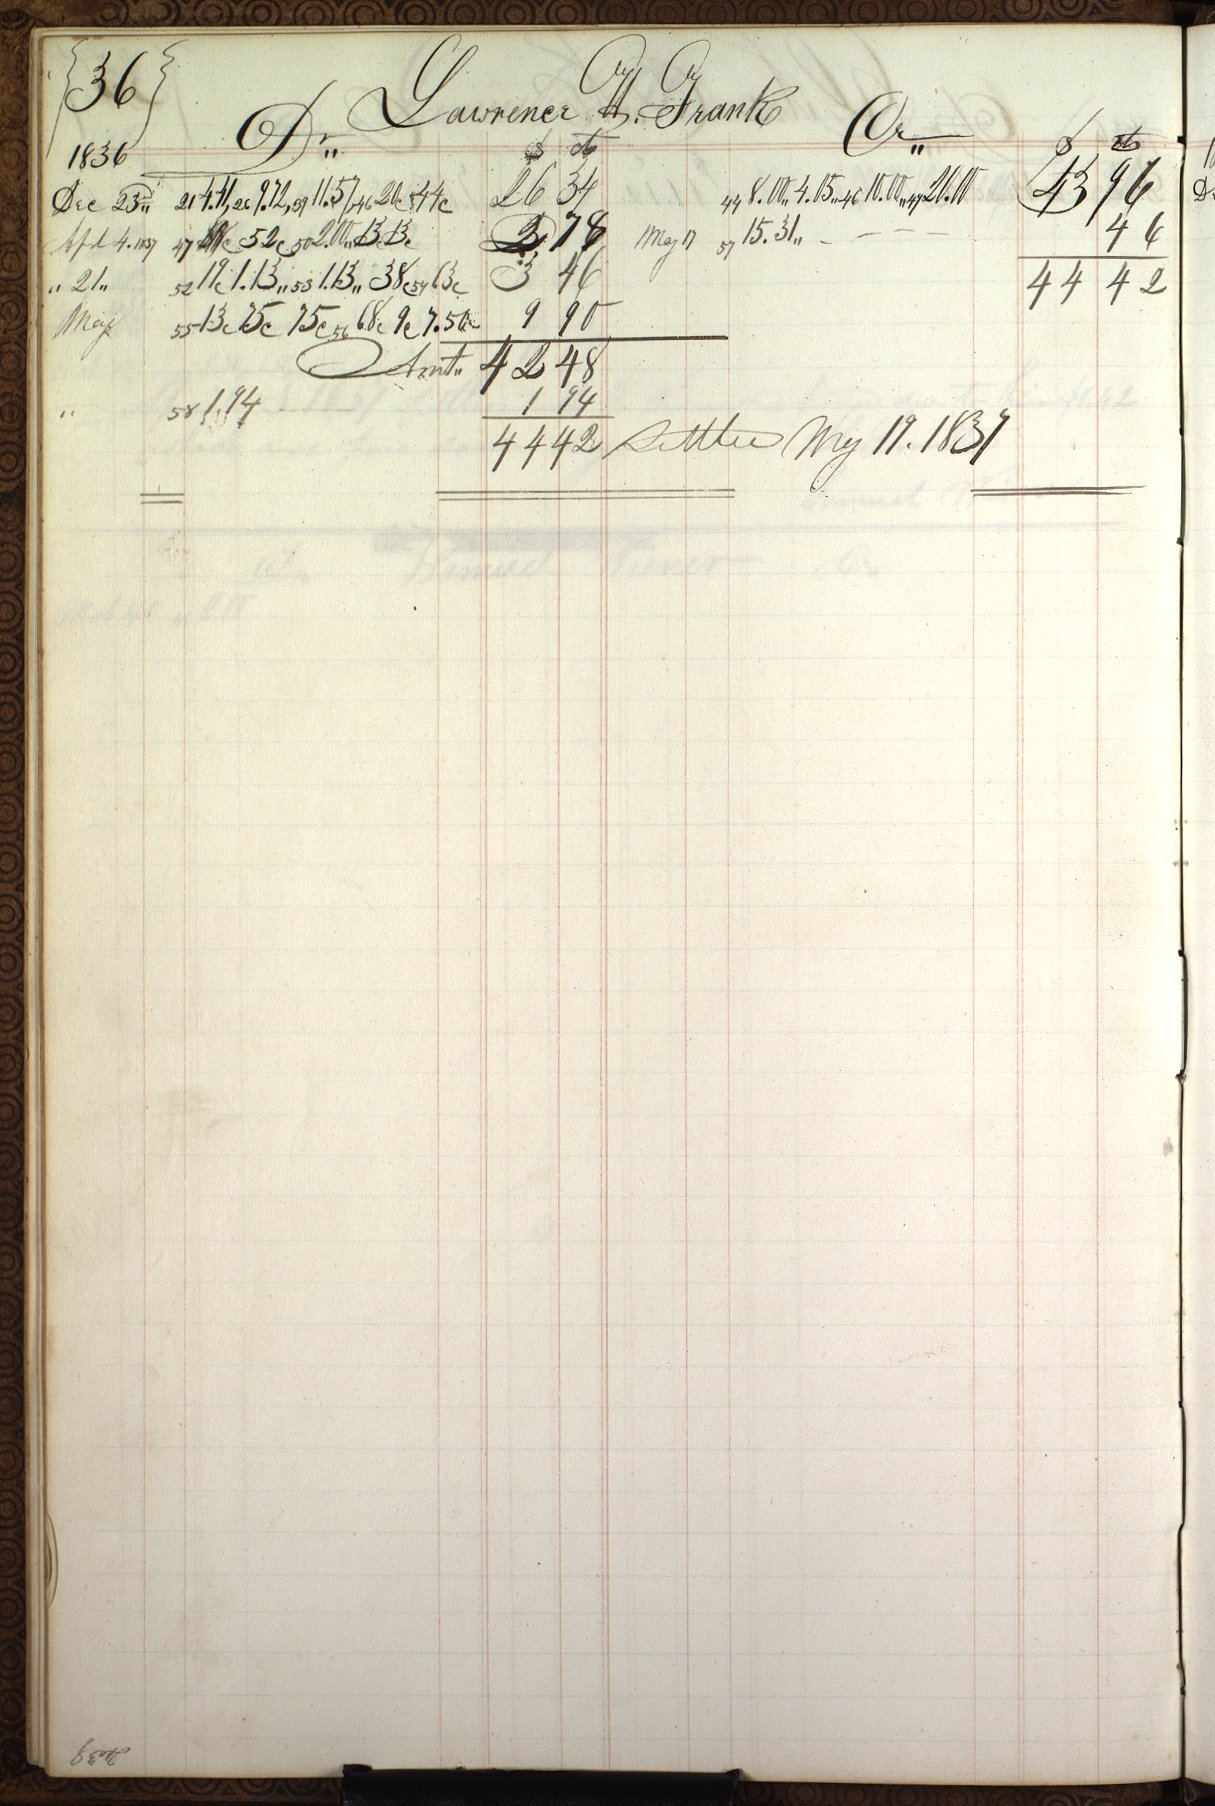 {36}
Lawrence H. Frank
Dr,, Cr,,
1836 $ cts $ cts
Dec 23,, 21 4.41, 26 9.72, 39 11.57, 46 20c 44c 26 34 44 8.00,, 4.15,, 46 10.00,, 49 21.11 43 96
Apl 4. 1837 47 52c 50 2.00,, 13c 13c 2 78 May 17 57 15. 31,, 46
,, 21,, 52 19c 1.13,, 53 1.13,, 38c 54 63c 3 46 44 42
May 55 13c 75c 75c 56 68c 9c 7.50c 9 90
Amt,, 42 48
,, 58 1.94 1 94
44 42 Settled May 19. 1837